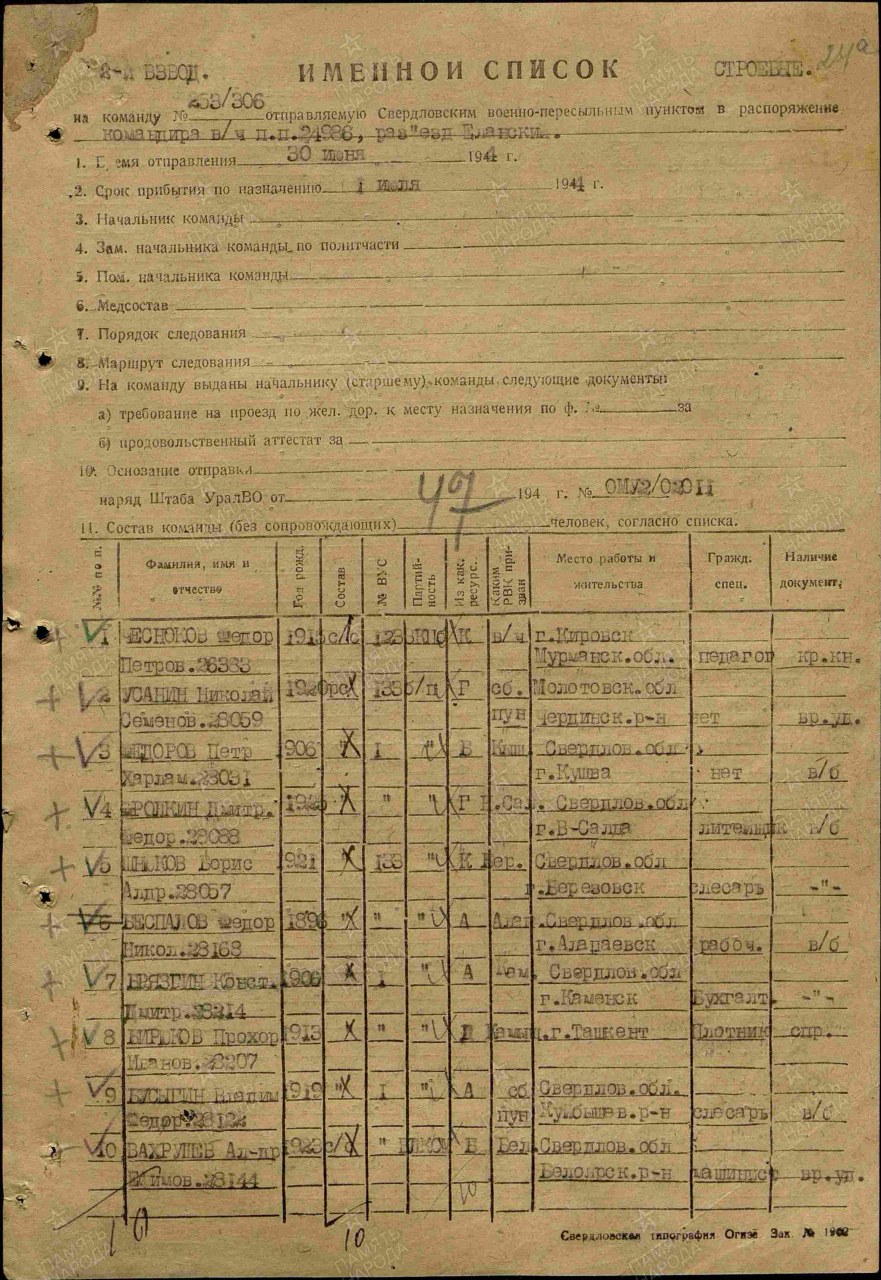 2-й ВЗВОД. ИМЕННОЙ СПИСОК СТРОЕВЫЕ. 24а
на команду № 263/306 отправляемую Свердловским военно-пересыльным пунктом в распоряжение
командира в/ч п.п.24986, раз"езд Еланский.
1. Время отправления 30 июня 1944 г.
2. Срок прибытия по назначению 1 июля 1944 г.
3. Начальник команды
4. Зам. начальника команды по политчасти
5. Пом. начальника команды
6. Медсостав
7. Порядок следования
8. Маршрут следования
9. На команду выданы начальнику (старшему) команды следующие документы:
а) требование на проезд по жел. дор. к месту назначения по ф. № за
б) продовольственный аттестат за
10. Основание отправки
наряд Штаба УралВО от 194 г. № ОМУ2/02011
47
11. Состав команды (без сопровождающих) человек, согласно списка.
№№ по п. Фамилия, имя и отчество Год рожд. Состав № ВУС Партийность Из как. ресурс. Каким РВК призван Место работы и жительства Гражд. спец. Наличие документ.
1 ЧЕСНОКОВ Федор 1918 с/с 123 К в/ч г.Кировск
Петров.26383 Мурманск.обл. педагог кр.кн.
2 УСАНИН Николай 1920 135 б/п Г сб. Молотовск.обл
Семенов.28059 пун Чердинск.р-н нет вр.уд.
3 ФЕДОРОВ Петр 1906 " 1 " Б Свердлов.обл
Харлам.28031 г.Кушва нет в/б
4 ФРОЛКИН Дмитр. " " Г Н.Сал. Свердлов.обл
Федор.28088 г.В-Салда литейщик в/б
5 Борис 1921 " 133 " К Бер. Свердлов.обл
Алдр.28057 г.Березовск слесарь -"-
6 БЕСПАЛОВ Федор 1896 " " " А Алап. Свердлов.обл
Никол.28168 г.Алапаевск рабоч. в/б
7 БРЯЗГИН Конст. 1906 " 1 " А Кам. Свердлов.обл
Дмитр.28214 г.Каменск Бухгалт. -"-
8 БИРЮКОВ Прохор 1913 " " " Камыш. г.Ташкент Плотник спр.
Иванов.28207
9 БУСЫГИН Владим 1919 " 1 " А сб Свердлов.обл.
Федор.28122 пун Куйбышев.р-н слесарь в/б
10 ВАХРУШЕВ Ал-др 1923 с/с " ВЛКСМ Б Бел. Свердлов.обл
Ефимов.28144 Белоярск.р-н машинист вр.уд.
10
10
Свердловская типография Огиза Зак. № 1902